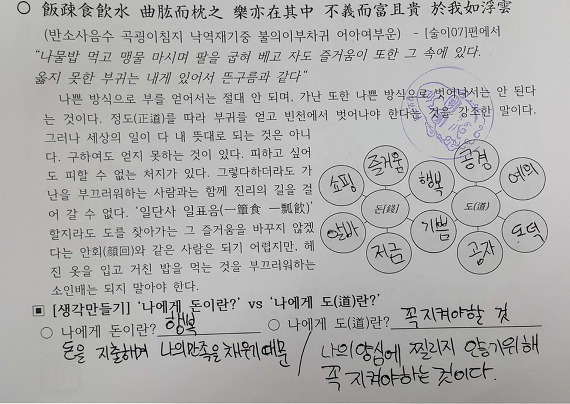 ○ 飯疎食飮水 曲肱而枕之 樂亦在其中 不義而富且貴 於我如浮雲
(반소사음수 곡굉이침지 낙역재기중 불의이부차귀 어아여부운) - [술이07]편에서
“나물밥 먹고 맹물 마시며 팔을 굽혀 베고 자도 즐거움이 또한 그 속에 있다.
옳지 못한 부귀는 내게 있어서 뜬구름과 같다”
나쁜 방식으로 부를 얻어서는 절대 안 되며, 가난 또한 나쁜 방식으로 벗어나서는 안 된다
는 것이다. 정도(正道)를 따라 부귀를 얻고 빈천에서 벗어나야 한다는 것을 강조한 말이다.
그러나 세상의 일이 다 내 뜻대로 되는 것은 아니
다. 구하여도 얻지 못하는 것이 있다. 피하고 싶어
도 피할 수 없는 처지가 있다. 그렇다하더라도 가
난을 부끄러워하는 사람과는 함께 진리의 길을 걸
어 갈 수 없다. ‘일단사 일표음(一簞食 一瓢飮)’
할지라도 도를 찾아가는 그 즐거움을 바꾸지 않겠
다는 안회(顔回)와 같은 사람은 되기 어렵지만, 헤
진 옷을 입고 거친 밥을 먹는 것을 부끄러워하는
소인배는 되지 말아야 한다.
즐거움
공경
쇼핑
행복
예의
돈[錢]
도(道)
알바
기쁨
도덕
저금
공자
▣ [생각만들기] ‘나에게 돈이란?’ vs ‘나에게 도(道)란?’
○ 나에게 돈이란? 행복
○ 나에게 도(道)란? 꼭 지켜야할 것
돈을 지출하며 나의만족을 채우기때문
나의 양심에 찔리지 않기위해
꼭 지켜야하는 것이다.